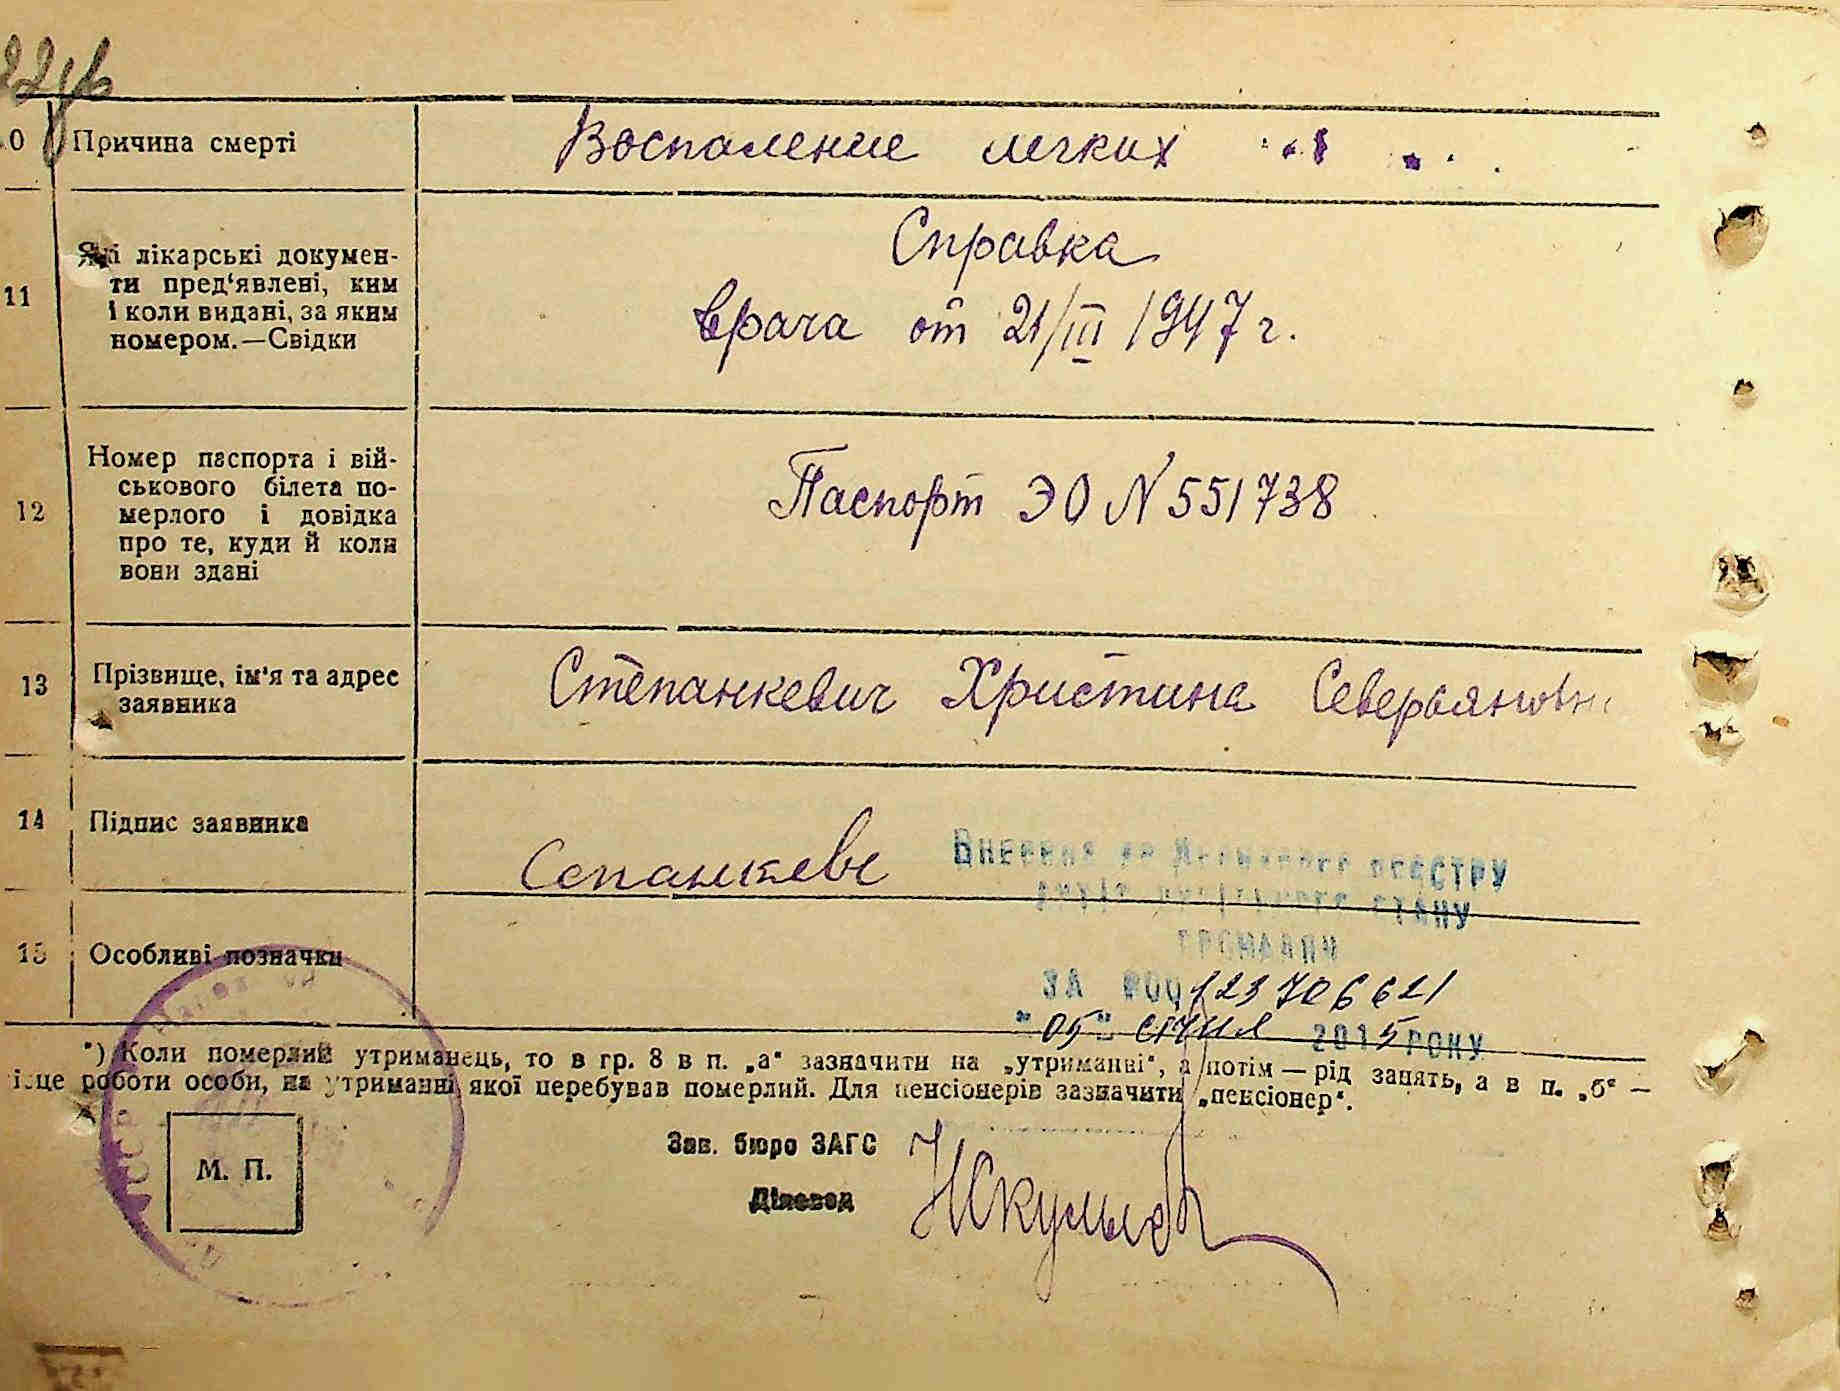 0 Причина смерті Воспаление легких
Справка
11 Які лікарські докумен-
ти пред'явлені, ким
і коли видані, за яким
номером.—Свідки
врача от 21/III 1947 г.
12 Номер паспорта і вій-
ськового білета по-
мерлого і довідка
про те, куди й коли
вони здані
Паспорт ЭО N 551738
13 Прізвище, ім'я та адрес
заявника
Степанкевич Христина Северьяновн
14 Підпис заявника
Сепанкевс
Внесено до Державного реєСТРУ
актів цивільного СТАНУ
ГРОМАДЯН
15 Особливі позначки
ЗА №00123706621
"05" січня 2015 РОКУ
*) Коли померлий утриманець, то в гр. 8 в п. „а" зазначити на „утриманні", а потім — рід занять, а в п. „б" —
ісце роботи особи, на утриманні якої перебував померлий. Для пенсіонерів зазначити „пенсіонер".
Зав. бюро ЗАГС
М. П.
Діловод